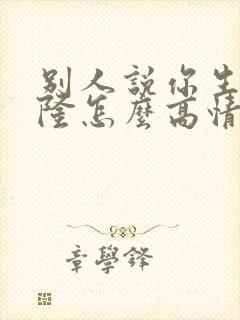 别人說你生
隆怎麼高情
章學鋒